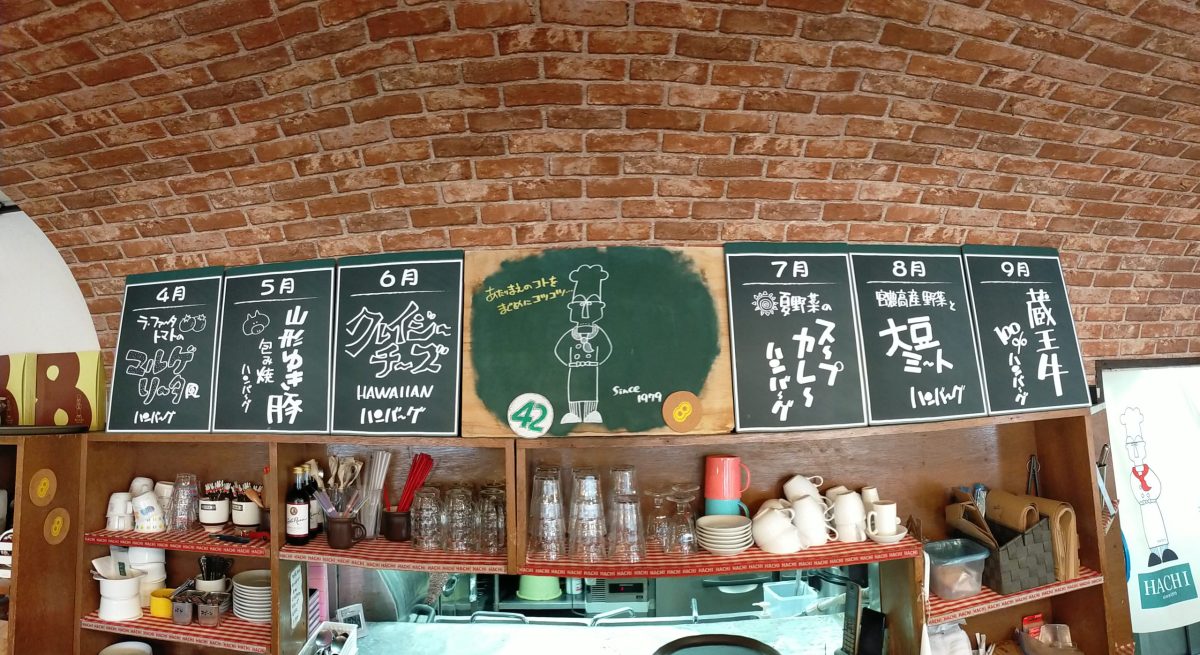 4月
ラ・ファータ
トマトの
マルゲ
リータ風
ハンバーグ
5月
山形ゆき豚
包み焼
ハンバーグ
6月
クレイジー
チーズ
HAWAIIAN
ハンバーグ
あたりまえのコトを
まじめにコツコツ…
Since
1979
42
8
7月
夏野菜の
スープ
カレー
ハンバーグ
8月
自農高産野菜と
大豆
ミート
ハンバーグ
9月
蔵王牛
100%ハンバーグ
B
HACHI
HACHI